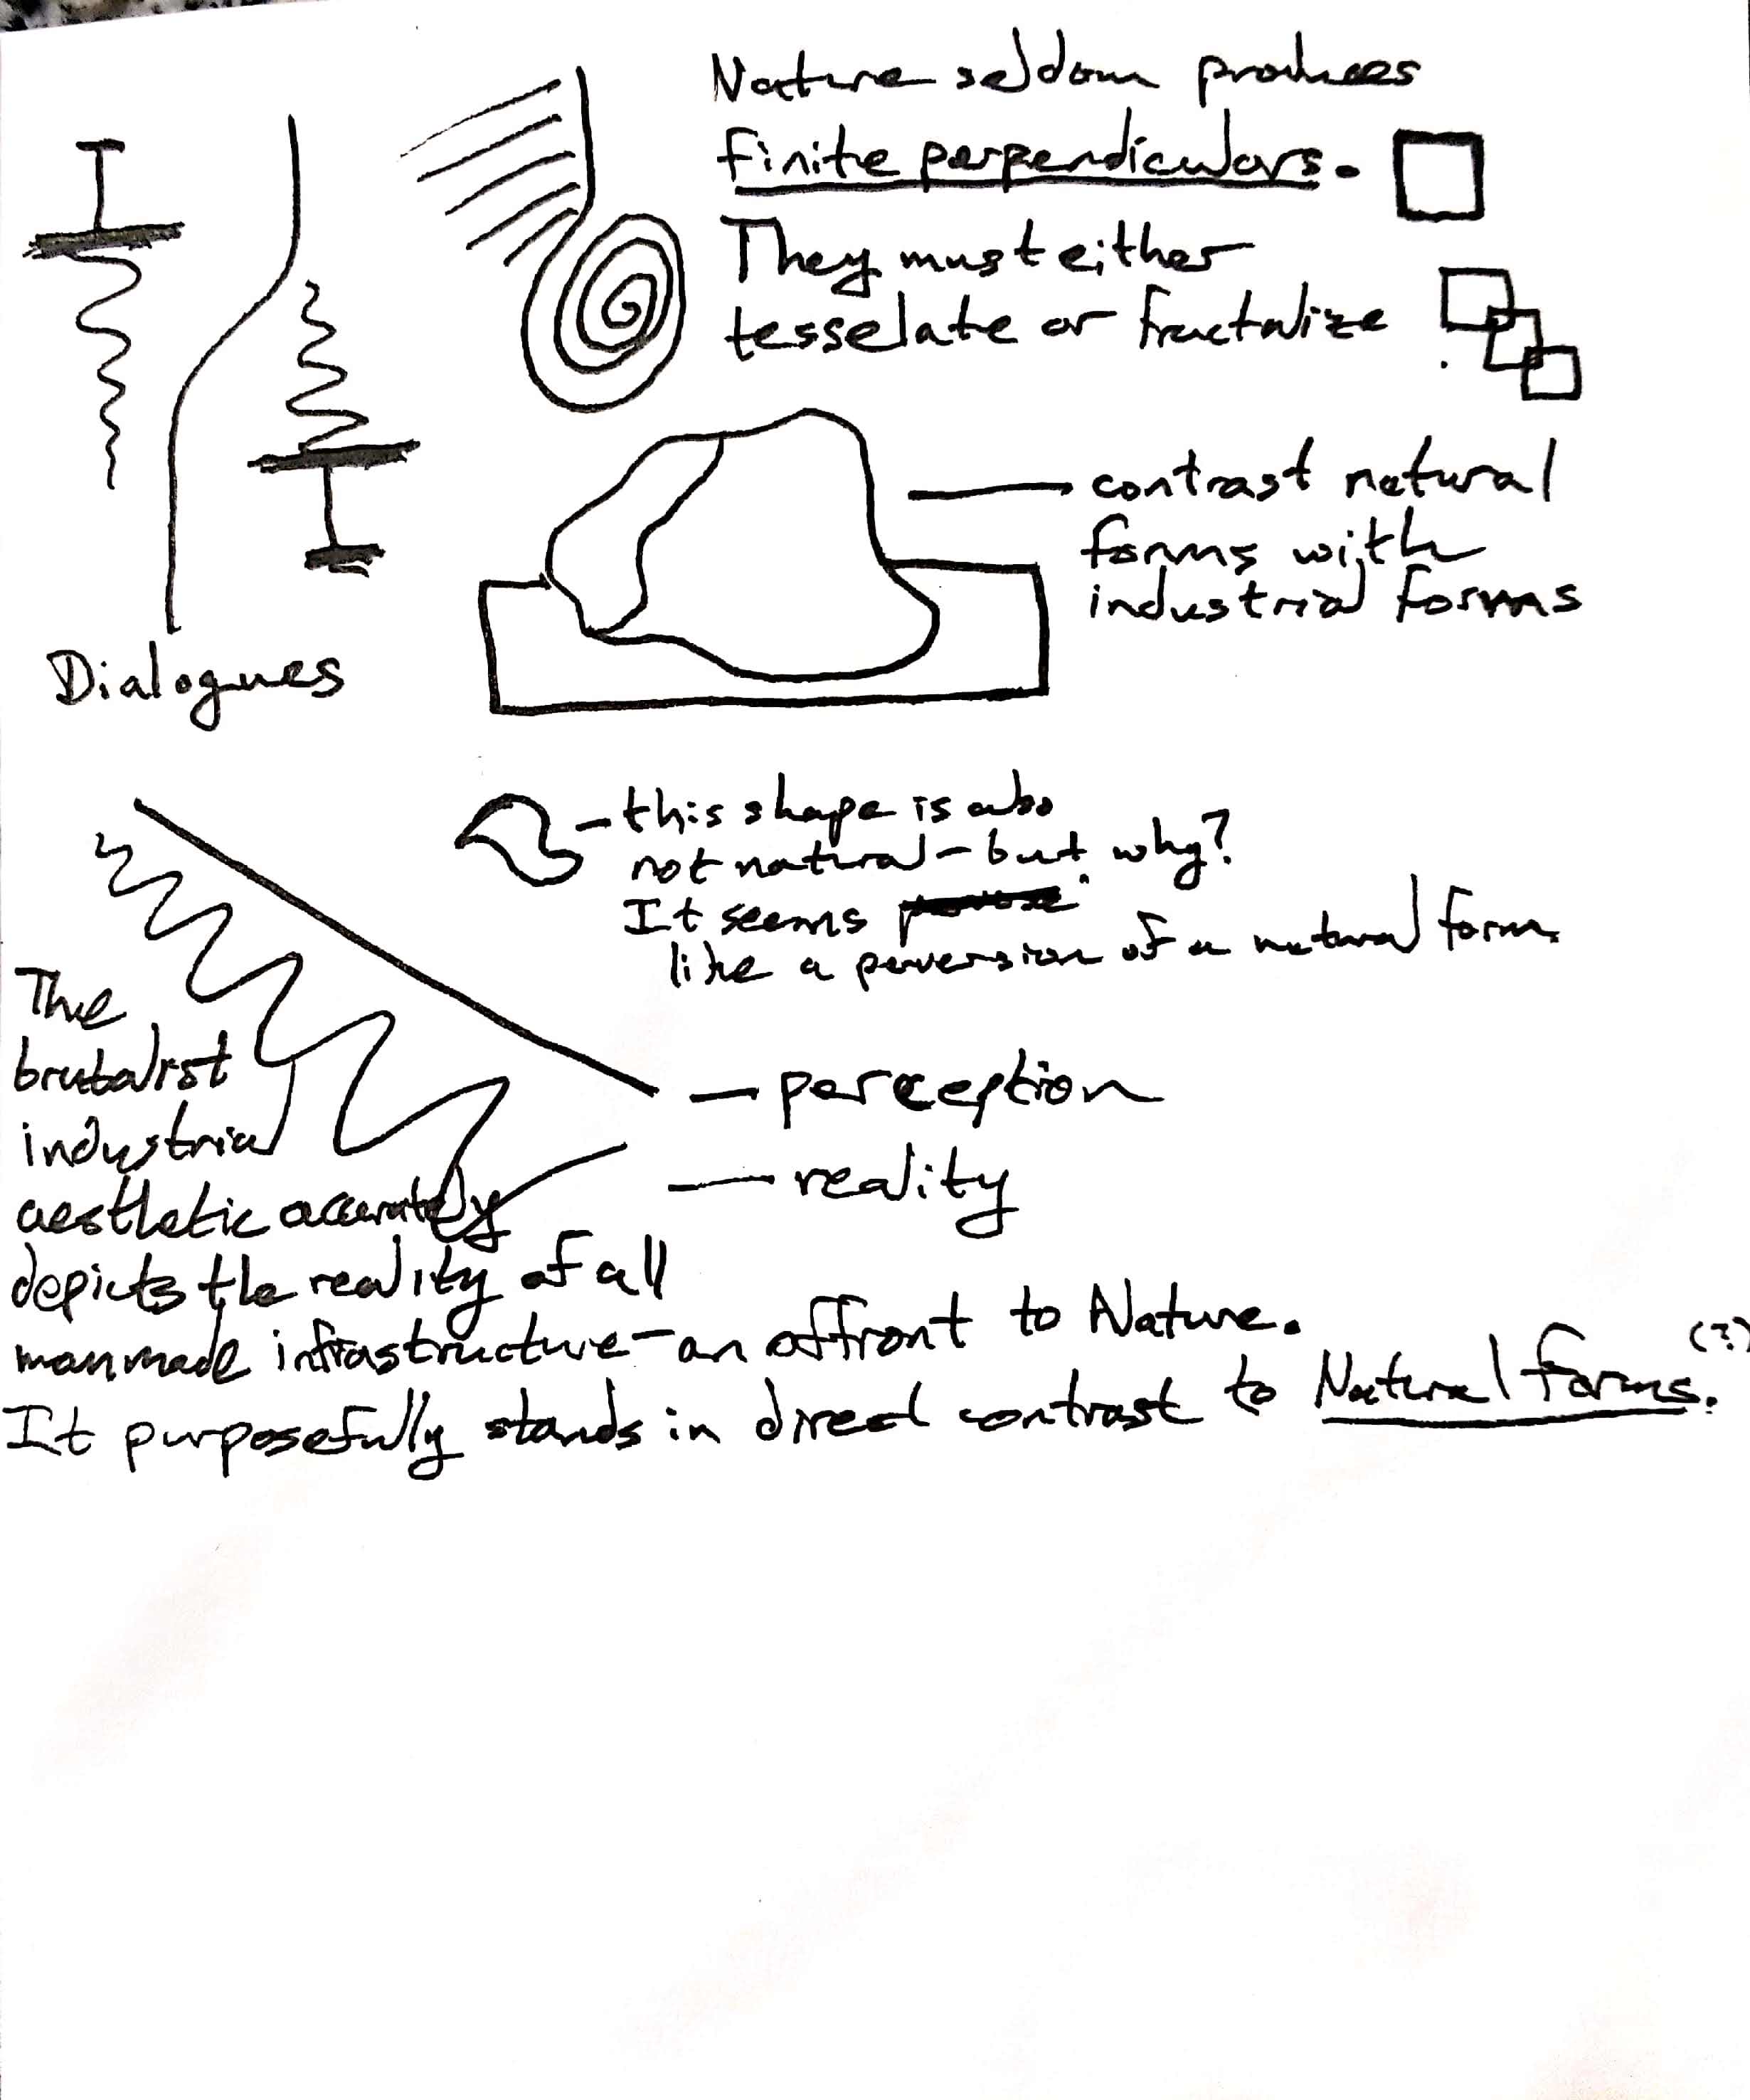 Nature seldom produces
finite perpendiculars.
They must either
tesselate or fractalize
contrast natural
forms with
industrial forms
Dialogues
this shape is also
not natural - but why?
It seems
like a perversion of a natural form.
perception
reality
The
brutalist
industrial
aesthetic accurately
depicts the reality of all
manmade infrastructure - an affront to Nature.
It purposefully stands in direct contrast to Natural forms. (?)